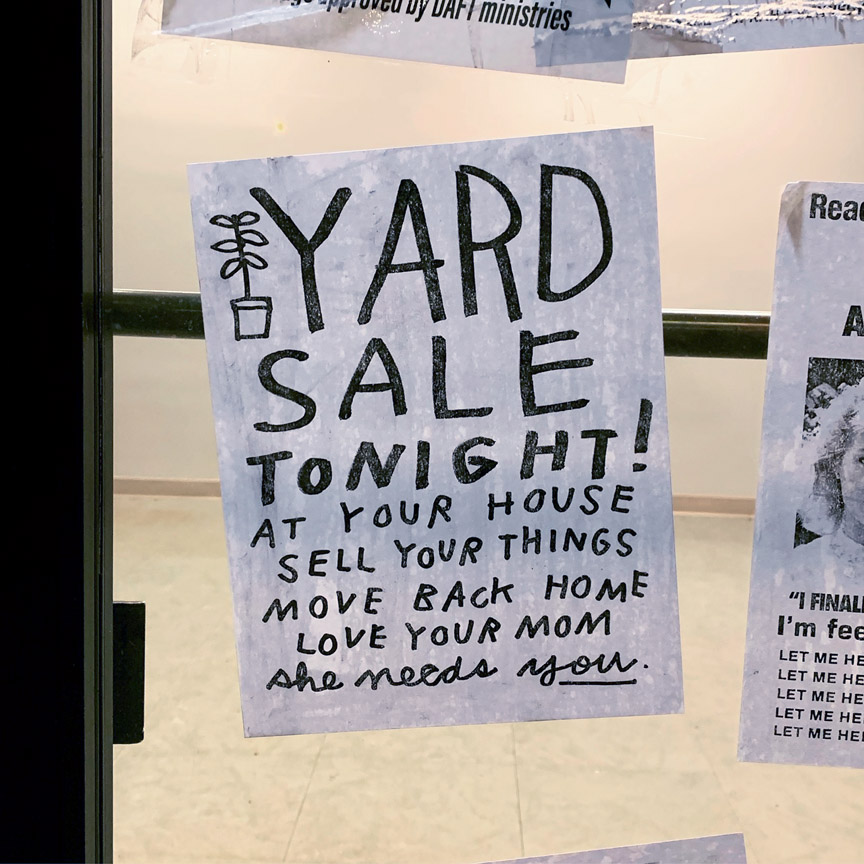 approved by DAFT ministries
YARD
SALE
TONIGHT!
AT YOUR HOUSE
SELL YOUR THINGS
MOVE BACK HOME
LOVE YOUR MOM
she needs you.
"I FINAL
I'm fee
LET ME HE
LET ME HE
LET ME HE
LET ME HE
LET ME HE